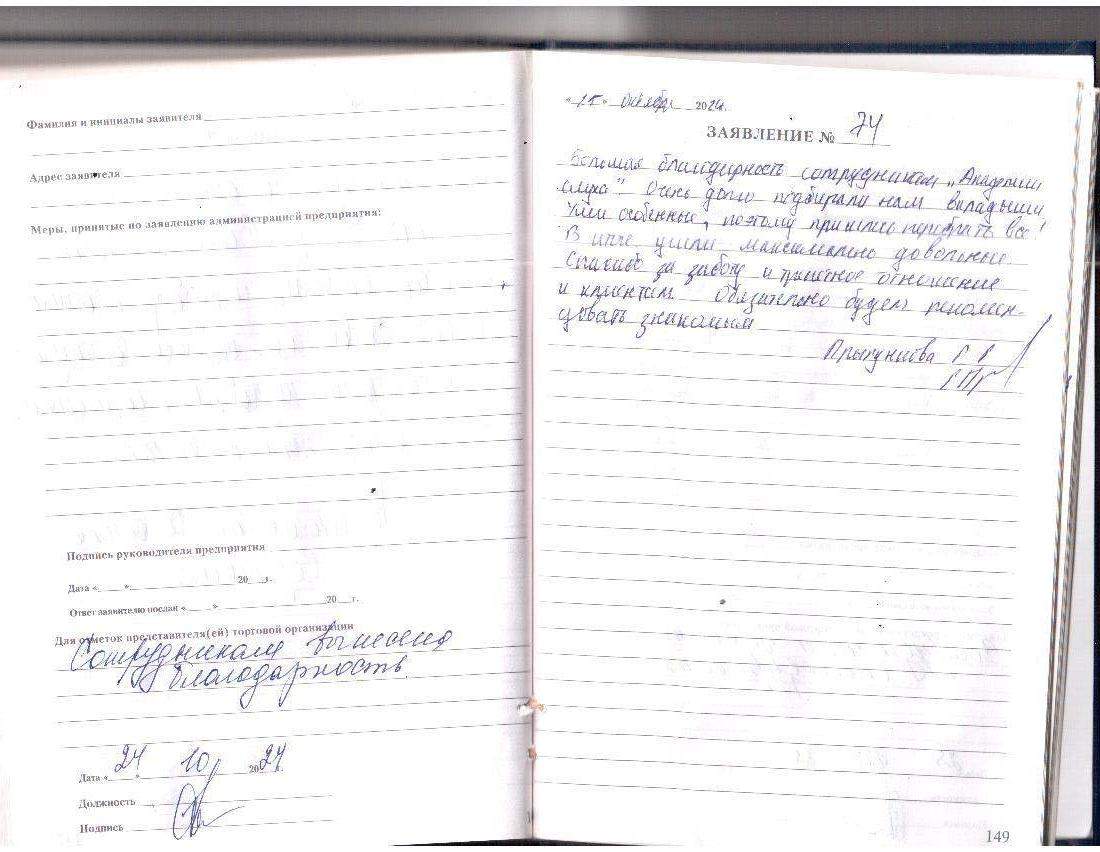 Фамилия и инициалы заявителя
Адрес заявителя
Меры, принятые по заявлению администрацией предприятия:
Подпись руководителя предприятия
Дата « » 20 г.
Ответ заявителю послан « » 20 г.
Для отметок представителя(ей) торговой организации
Сотрудникам вынесена
благодарность.
Дата « 24 » 10 2024
Должность
Подпись
« 15 » октября 2024г.
ЗАЯВЛЕНИЕ № 74
Большая благодарность сотрудникам „Академии
слуха". Очень долго подбирали нам вкладыши
Уши особенные, поэтому пришлось перебрать все!
В итоге ушли максимально довольные.
Спасибо за заботу и приятное отношение
к клиентам. Обязательно будем рекомен-
довать знакомым
Г Г
149